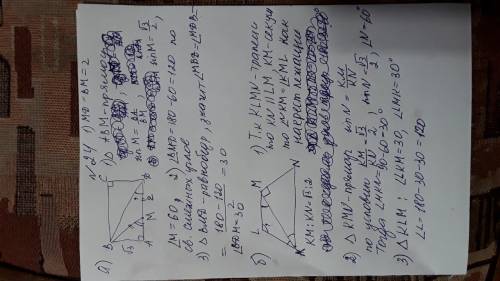 №24
а)
1) MD = BM = 2
2) △ ABM - прямоуг
sin M = BA/BM
sin M = √3/2,
∠M = 60,
2) ∠BMD = 180 - 60 = 120 по
св. смежных углов
3) △ BMD - равнобедр, значит ∠MBD = ∠MDB =
= (180 - 120)/2 = 30
∠BDM = 30
B
C
A
M
D
√3
2
б)
KM : KN = √3 : 2
L
M
K
N
1) Т.к KLMN - трапеция
то KN || LM, KM - секущ
то ∠NKM = ∠KML как
накрест лежащие
2) △ KMN - прямоуг
sin N = KM/KN
по условию KM/KN = √3/2, sin N = √3/2, ∠N = 60°
Тогда ∠MKN = 90 - 60 = 30°
3) △ KLM: ∠KM = 30, ∠LKM = 30°
∠L = 180 - 30 - 30 = 120